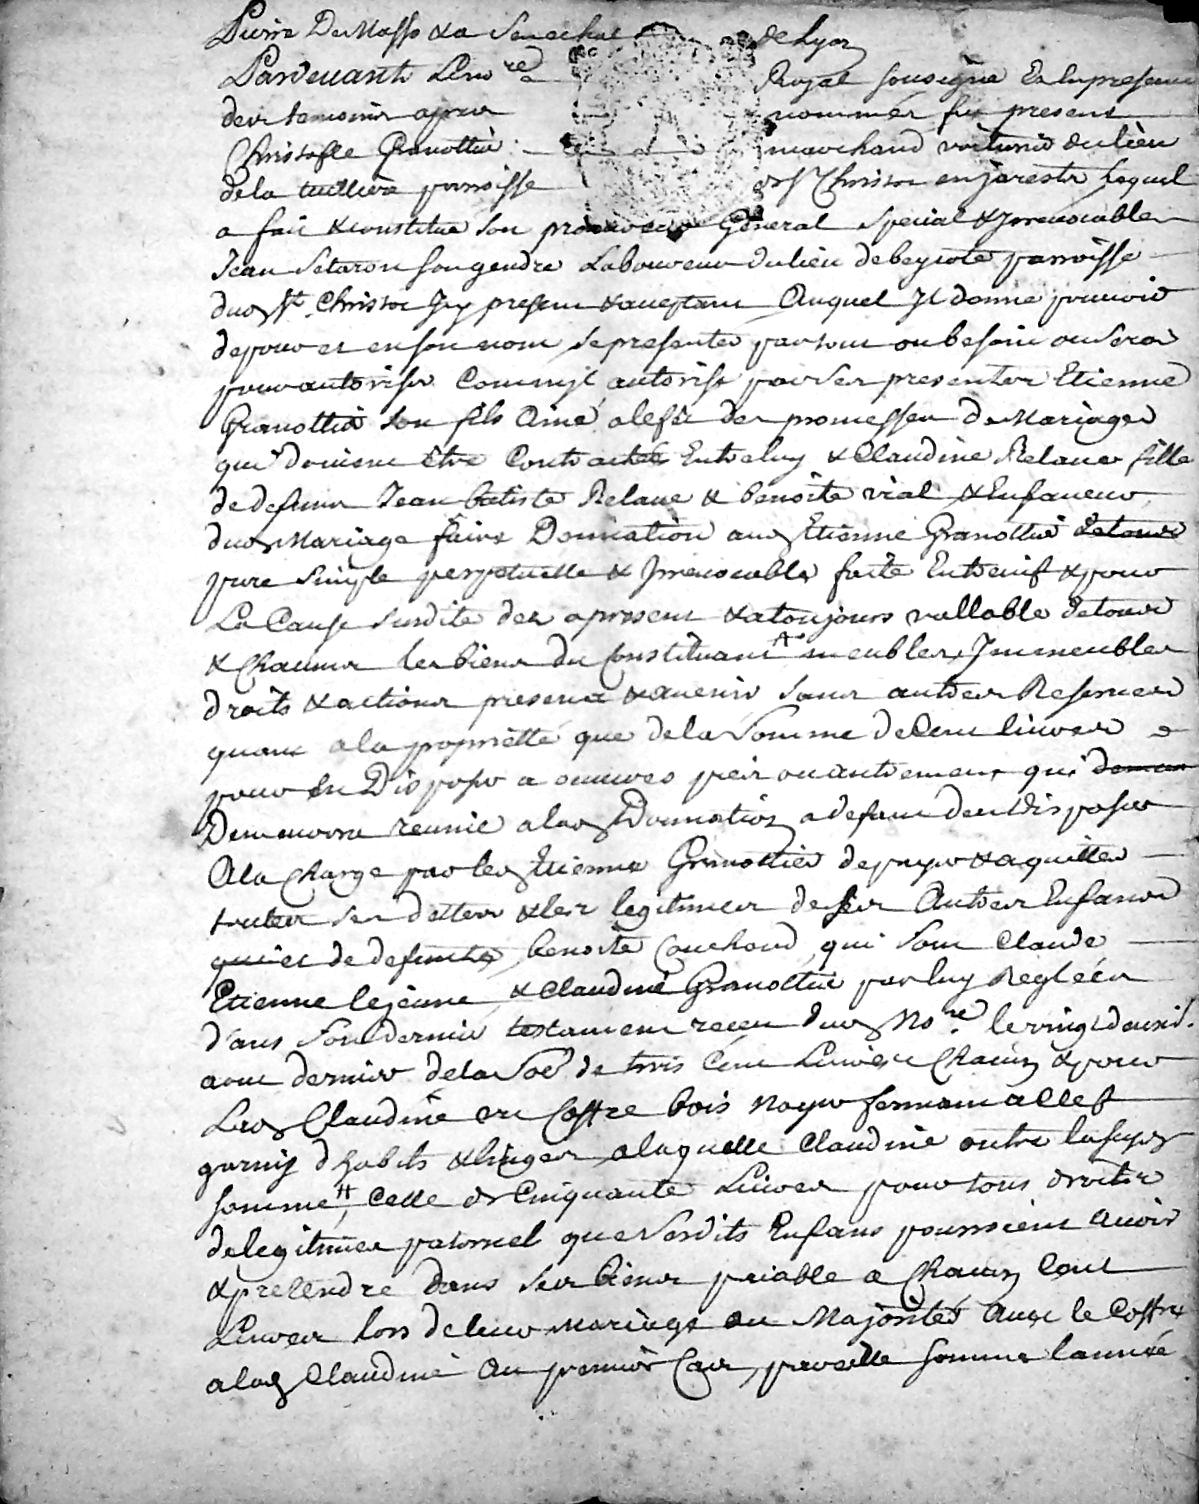 Pierre De Masso & a Senechal de Lyon
Pardevant Le no.re Royal sousigné Et En presence
des temoins apres nommés fut present
Christofle Granottier marchand voiturié du lieu
de la tuilliere parroisse de St Christo en jarestz Lequel
a fait & constitué son procureur General special & Jrrevocable
Jean Setaron son gendre Laboureur du lieu de parroisse
dud St. Christo Jcy present & acceptant Auquel Jl donne pouvoir
de pour et en son nom se presenter partout ou besoin ou sera
pour autoriser Comm'jl autorise par ses presentes Etienne
Granottier son fils Ainé a lefet des promesses de Mariage
qui doivent être Contractées Entre luy & Claudine Relave fille
de defunt Jean batiste Relave & benoite vial & En faveur
dud Mariage faire Donnation aud Etienne Granottier
pure Simple perpetuelle & Jrrevocable faite Entre vif & pour
La Cause susdite des a present & a toujours vallable de tous
& Chacuns les biens du Constituant meubles, Jmmeubles
droits & actions presens & avenir sans autres Reserves
quant a la propriétté que de la Somme de Cent livres
pour En Disposer a oeuvres pies ou autrement qui
Demeurera reunie a lad Donnation a defaut den disposer
A la Charge par led Etienne Granottier de payer & aquitter
toutes ses dettes & les legitimes de ses Autres Enfans
de defunte benoite Couchoud qui sont Claude
Etienne le jeune & Claudine Granottier par luy Reglées
dans son dernier testament receu dud No.re le vingt
aout dernier de la Soe de trois Cent Livres Chacun & pour
Lad Claudine un Coffre bois noyer fermant a Clef
garny d'habits & linges a laquelle Claudine outre la susd
somme Celle de Cinquante Livres pour tous droits
de legitimes paternel que Sesdits Enfans pourroient Avoir
& pretendre dans ses biens païable a Chacun Cent
Livres lors de leur mariage ou Majorité Avec le Coffre
a lad Claudine Au premier Cas, pareille somme lannée